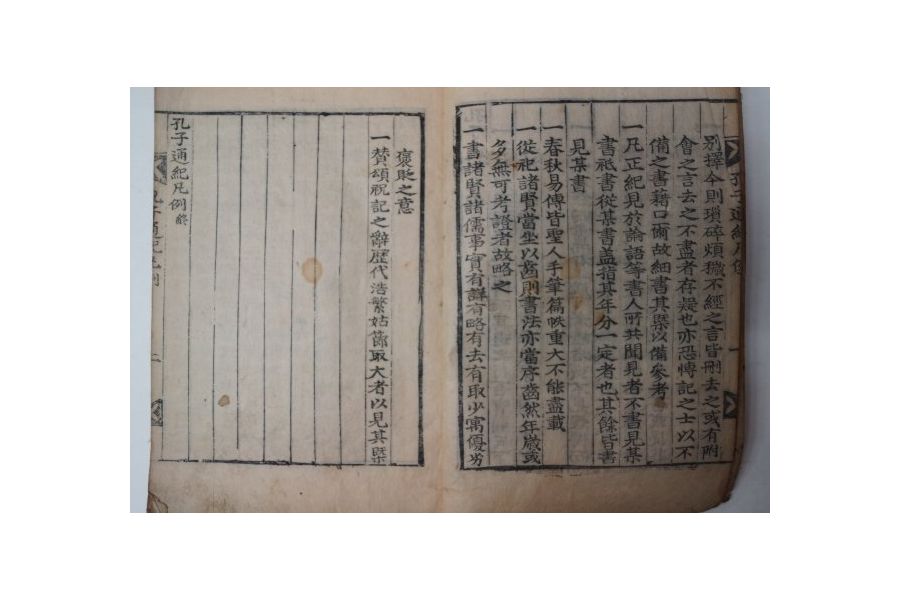 孔子通紀凡例
別擇今則瑣碎煩猥不經之言皆刪去之或有附
會之言去之不盡者存疑也亦恐博記之士以不
備之書藉口而故細書其槩以備參考
一凡正紀見於論語等書人所共聞見者不書見某
書祇書從某書盖指其年分一定者也其餘皆書
見某書
一春秋易傳皆聖人手筆篇帙重大不能盡載
一從祀諸賢當坐以齒則書法亦當序齒然年歲或
多無可考證者故略之
一書諸賢諸儒事實有詳有略有去有取少寓優劣
褒貶之意
一贊頌祝記之辭歷代浩繁姑節取大者以見其槩
孔子通紀凡例終
孔子通紀凡例
二